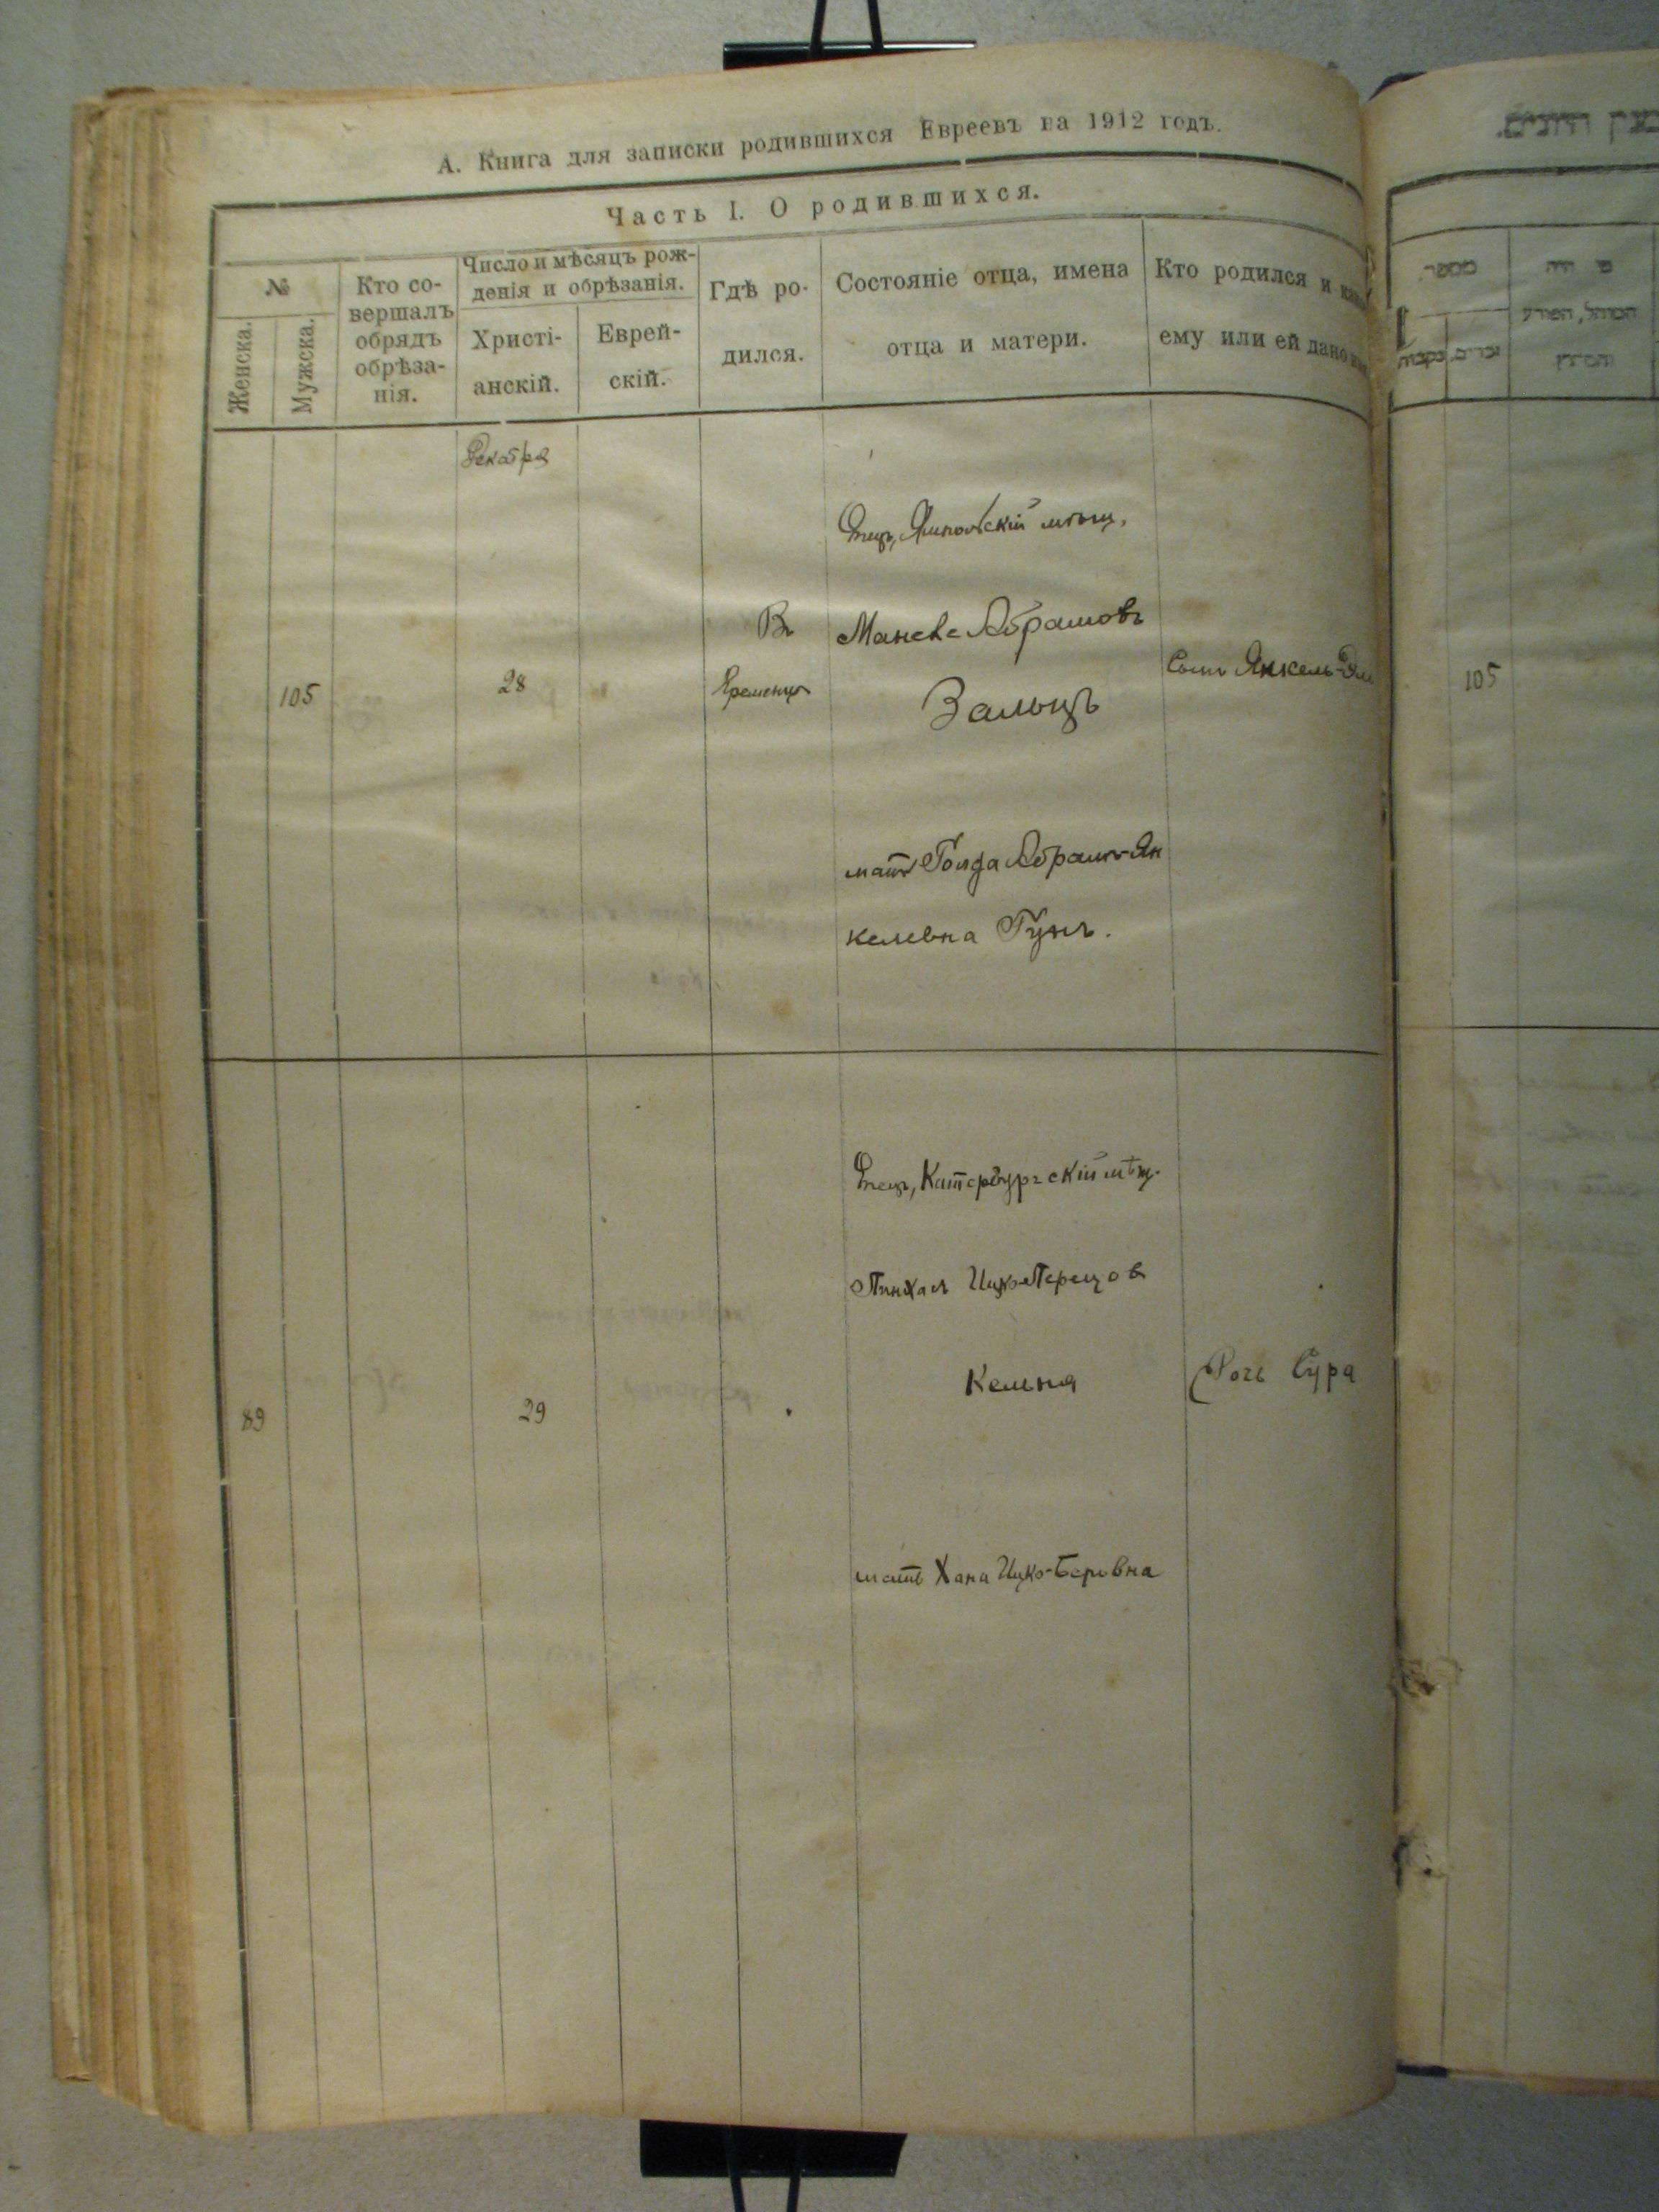 А. Книга для записки родившихся Евреевъ на 1912 годъ.
Часть I. О родившихся.
№
Женска.
Мужска.
Кто со-
вершалъ
обрядъ
обрѣза-
нія.
Число и мѣсяцъ рож-
денія и обрѣзанія.
Христі-
анскій.
Еврей-
скій.
Гдѣ ро-
дился.
Состояніе отца, имена
отца и матери.
Кто родился и
ему или ей дано
Декабря
105
28
Въ
Кременцѣ
Отецъ, Ямпольскій мѣщ.
Манеле Абрамовъ
Залыцъ
мать Голда Абрамъ-Ян
келевна
Сынъ Янкель
89
29
Отецъ, Катербургскій мѣщ.
Пинхас Ицко-Перецов
Кельна
мать Хана Ицко-Беровна
Дочь Сура
מספר
זכרים
נקבות
מי היה
המוהל, הפורע
105